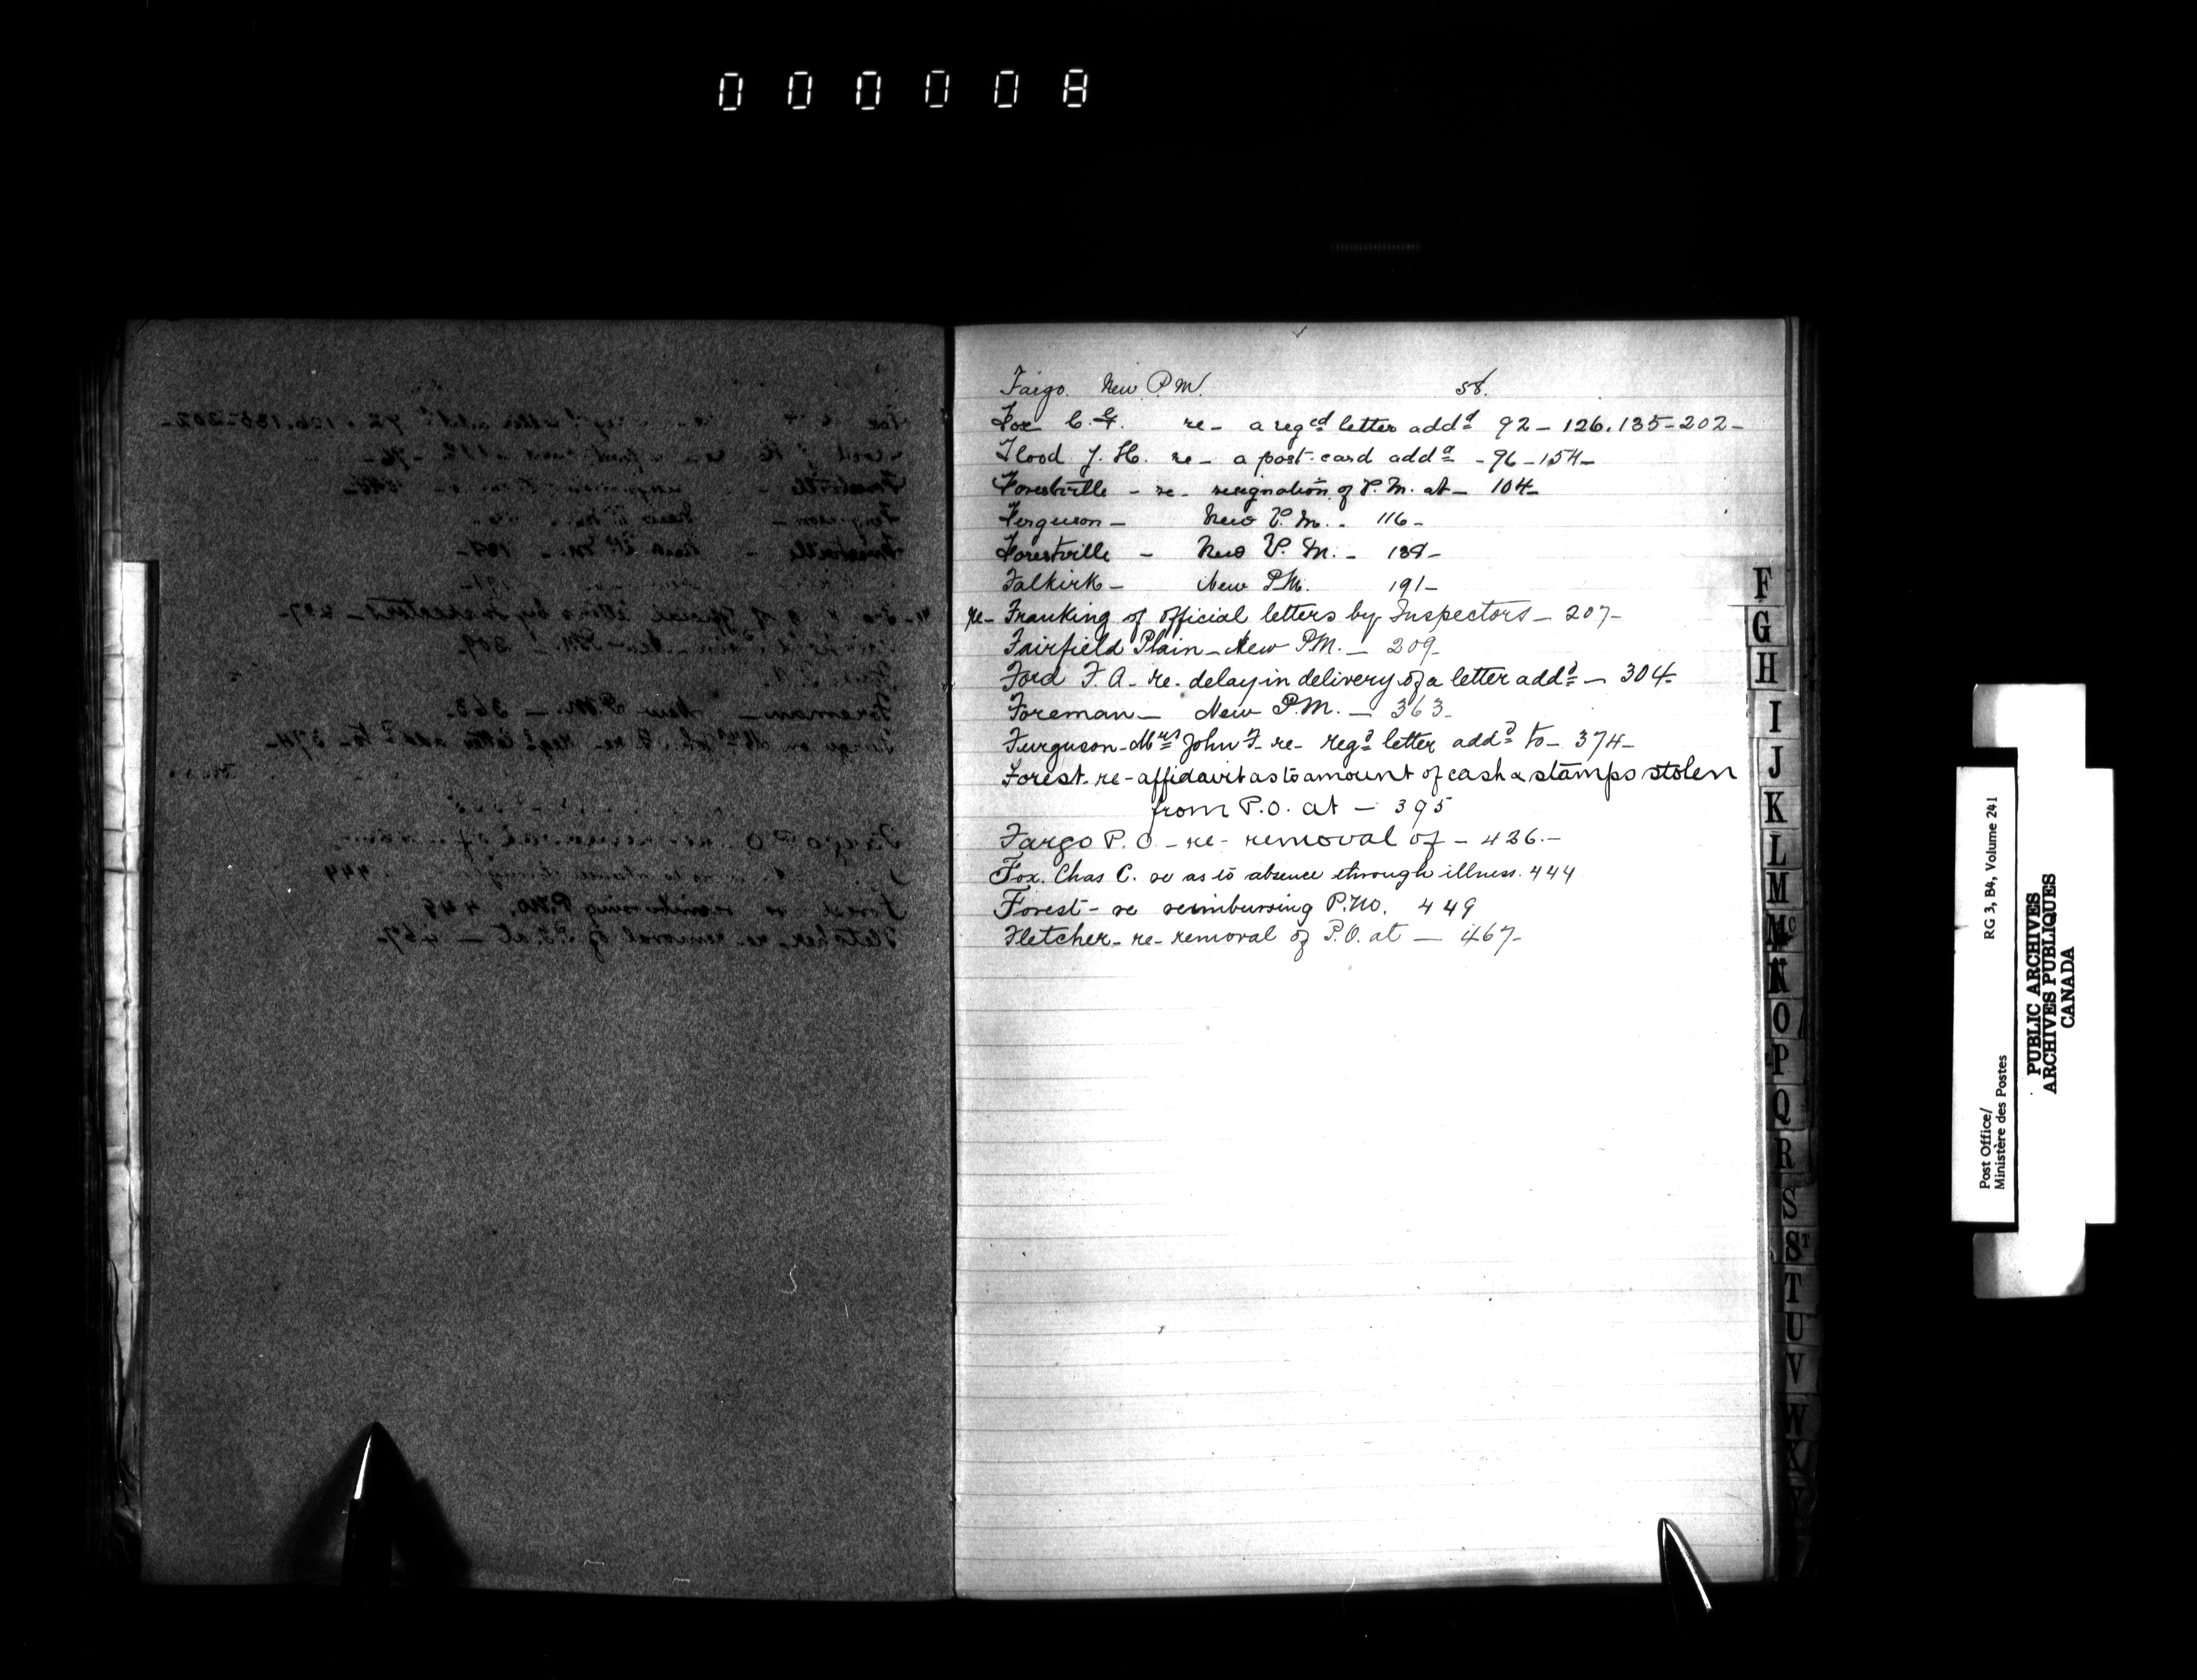 000008
Fargo. New P.M. 58.
Fox C. E. re- a reg^ed letter add^d 92 - 126. 135 - 202 -
Flood J. H. re- a post-card add^d - 96 - 154 -
Forestville - re- resignation of P. M. at - 104 -
Ferguson - New P. M. - 116 -
Forestville - New P. M. -
Falkirk - New P.M. 191 -
re- Franking of official letters by Inspectors - 207 -
Fairfield Plain - New P.M. - 209 -
Ford F. A - re- delay in delivery of a letter add^d - 304 -
Foreman - New P.M. - 363 -
Furguson - Mrs John F - re- reg^d letter add^d to - 374 -
Forest - re - affidavit as to amount of cash & stamps stolen
from P.O. at - 395
Fargo P. O. - re - removal of - 426. -
Fox. Chas C. re as to absence through illness. 444
Forest - re reimbursing P.M. 449
Fletcher - re- removal of P.O. at - 467 -
F
G
H
I
J
K
L
M
Mc
N
O
P
Q
R
S
ST
T
U
V
W
X
Y
Post Office/
Ministère des Postes
RG 3, B4, Volume 241
PUBLIC ARCHIVES
ARCHIVES PUBLIQUES
CANADA